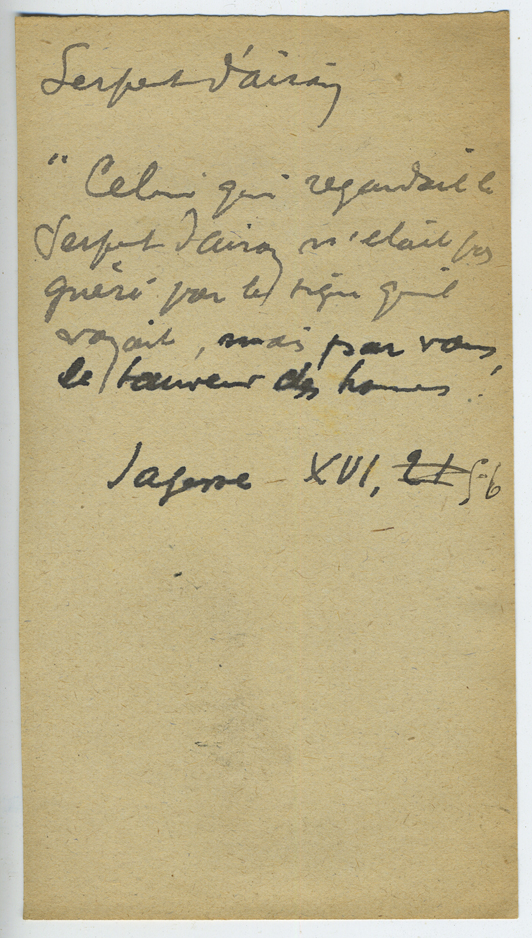 Serpent d'airain
" Celui qui regardait le
Serpent d'airain n'était pas
guéri par le signe qu'il
voyait, mais par vous,
le sauveur des hommes !
Sagesse - XVI, 21 5-6